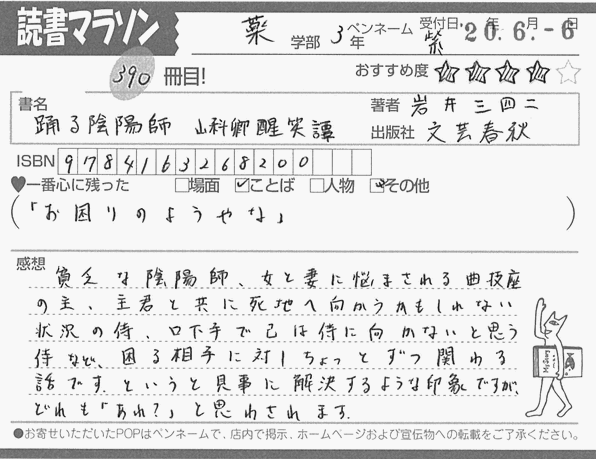 読書マラソン
薬 学部 3年 ペンネーム 紫 受付日 20.6.-6 年 月 日
390 冊目! おすすめ度 ☆☆☆☆☆
書名 踊る陰陽師 山科卿醒笑譚
著者 岩井三四二
出版社 文芸春秋
ISBN 9784163268200
♥一番心に残った □場面 ☑ことば □人物 ☑その他
(「お困りのようやな」)
感想
貧乏な陰陽師、女と妻に悩まされる曲技座
の主、主君と共に死地へ向かうかもしれない
状況の侍、口下手で己は侍に向かないと思う
侍など、困る相手に対しちょっとずつ関わる
話です。というと見事に解決するような印象ですが、
どれも「あれ?」と思わされます。
●お寄せいただいたPOPはペンネームで、店内で掲示、ホームページおよび宣伝物への転載をご了承ください。